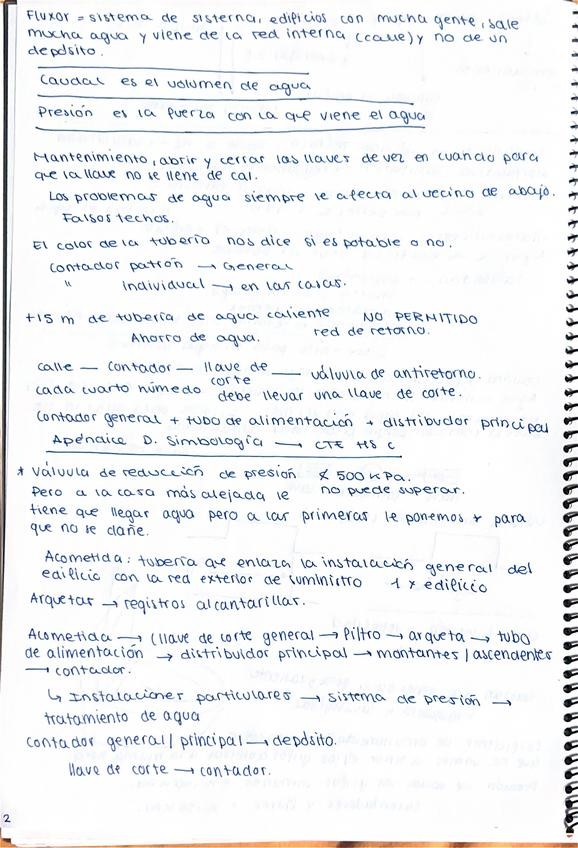 Fluxor = sistema de sisterna, edificios con mucha gente, sale
mucha agua y viene de la red interna (calle) y no de un
depósito.
Caudal es el volumen de agua
Presión es la fuerza con la que viene el agua
Mantenimiento, abrir y cerrar las llaves de vez en cuando para
que la llave no se llene de cal.
Los problemas de agua siempre le afecta al vecino de abajo.
Falsos techos.
El color de la tubería nos dice si es potable o no.
Contador patrón → General
" Individual → en las casas.
+15 m de tubería de agua caliente NO PERMITIDO
Ahorro de agua. red de retorno.
calle — contador — llave de corte — válvula de antiretorno.
cada cuarto húmedo debe llevar una llave de corte.
Contador general + tubo de alimentación + distribuidor principal
Apéndice D. Simbología → CTE HS C
* Válvula de reducción de presión 500 kPa.
Pero a la casa más alejada le no puede superar.
tiene que llegar agua pero a las primeras le ponemos * para
que no se dañe.
Acometida: tubería que enlaza la instalación general del
edificio con la red exterior de suministro 1 x edificio
Arquetas → registros alcantarillas.
Acometida → (llave de corte general → filtro → arqueta → tubo
de alimentación → distribuidor principal → montantes / ascendentes
→ contador.
↳ Instalaciones particulares → sistema de presión →
tratamiento de agua
Contador general / principal → depósito.
llave de corte → contador.
2